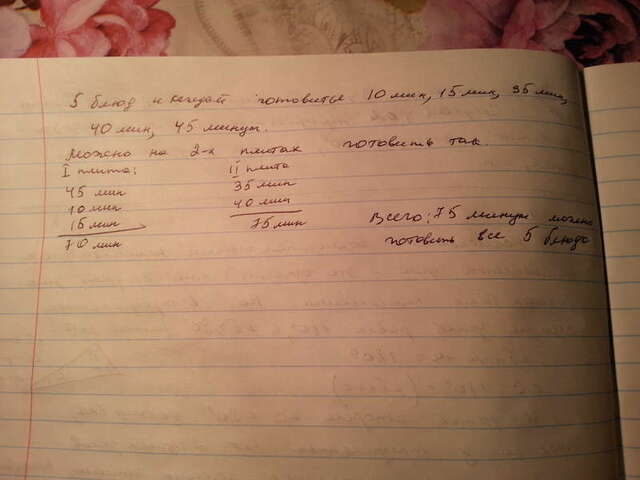 5 блюд и каждый готовится 10 мин, 15 мин, 35 мин,
40 мин, 45 минут.
Можно на 2-х плитах готовить так
I плита: II плита
45 мин 35 мин
10 мин 40 мин
15 мин 75 мин
70 мин
Всего: 75 минут можно
готовить все 5 блюдо